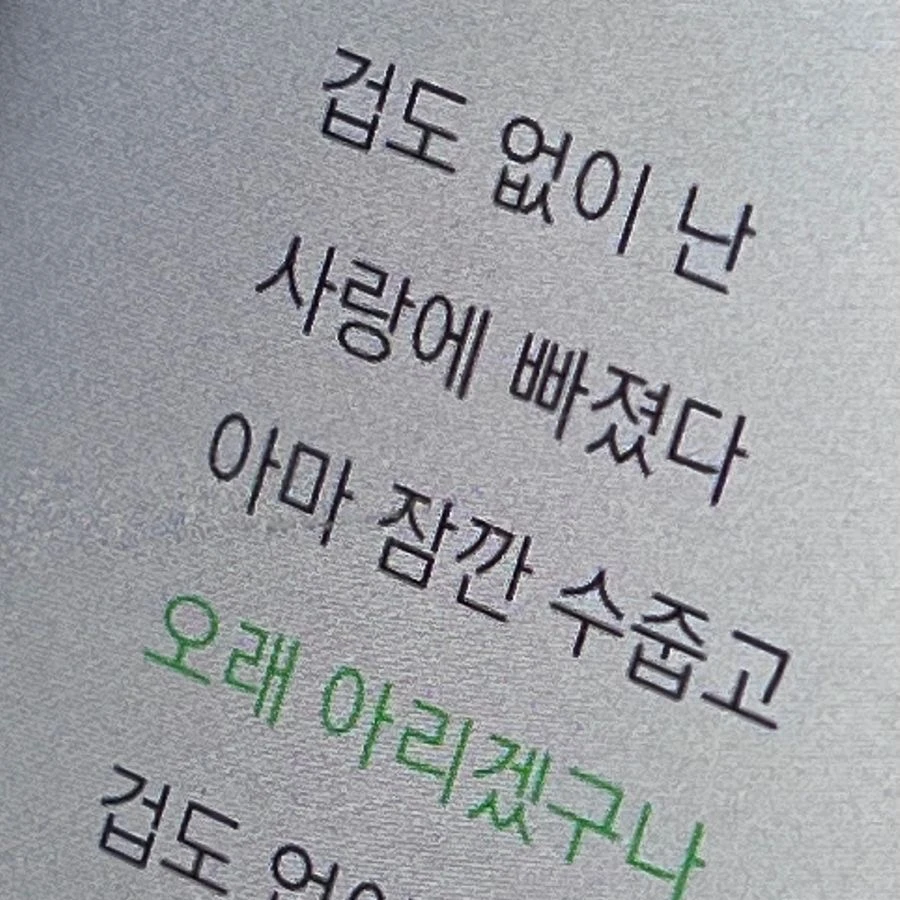 겁도 없이 난
사랑에 빠졌다
아마 잠깐 수줍고
오래 아리겠구나
겁도